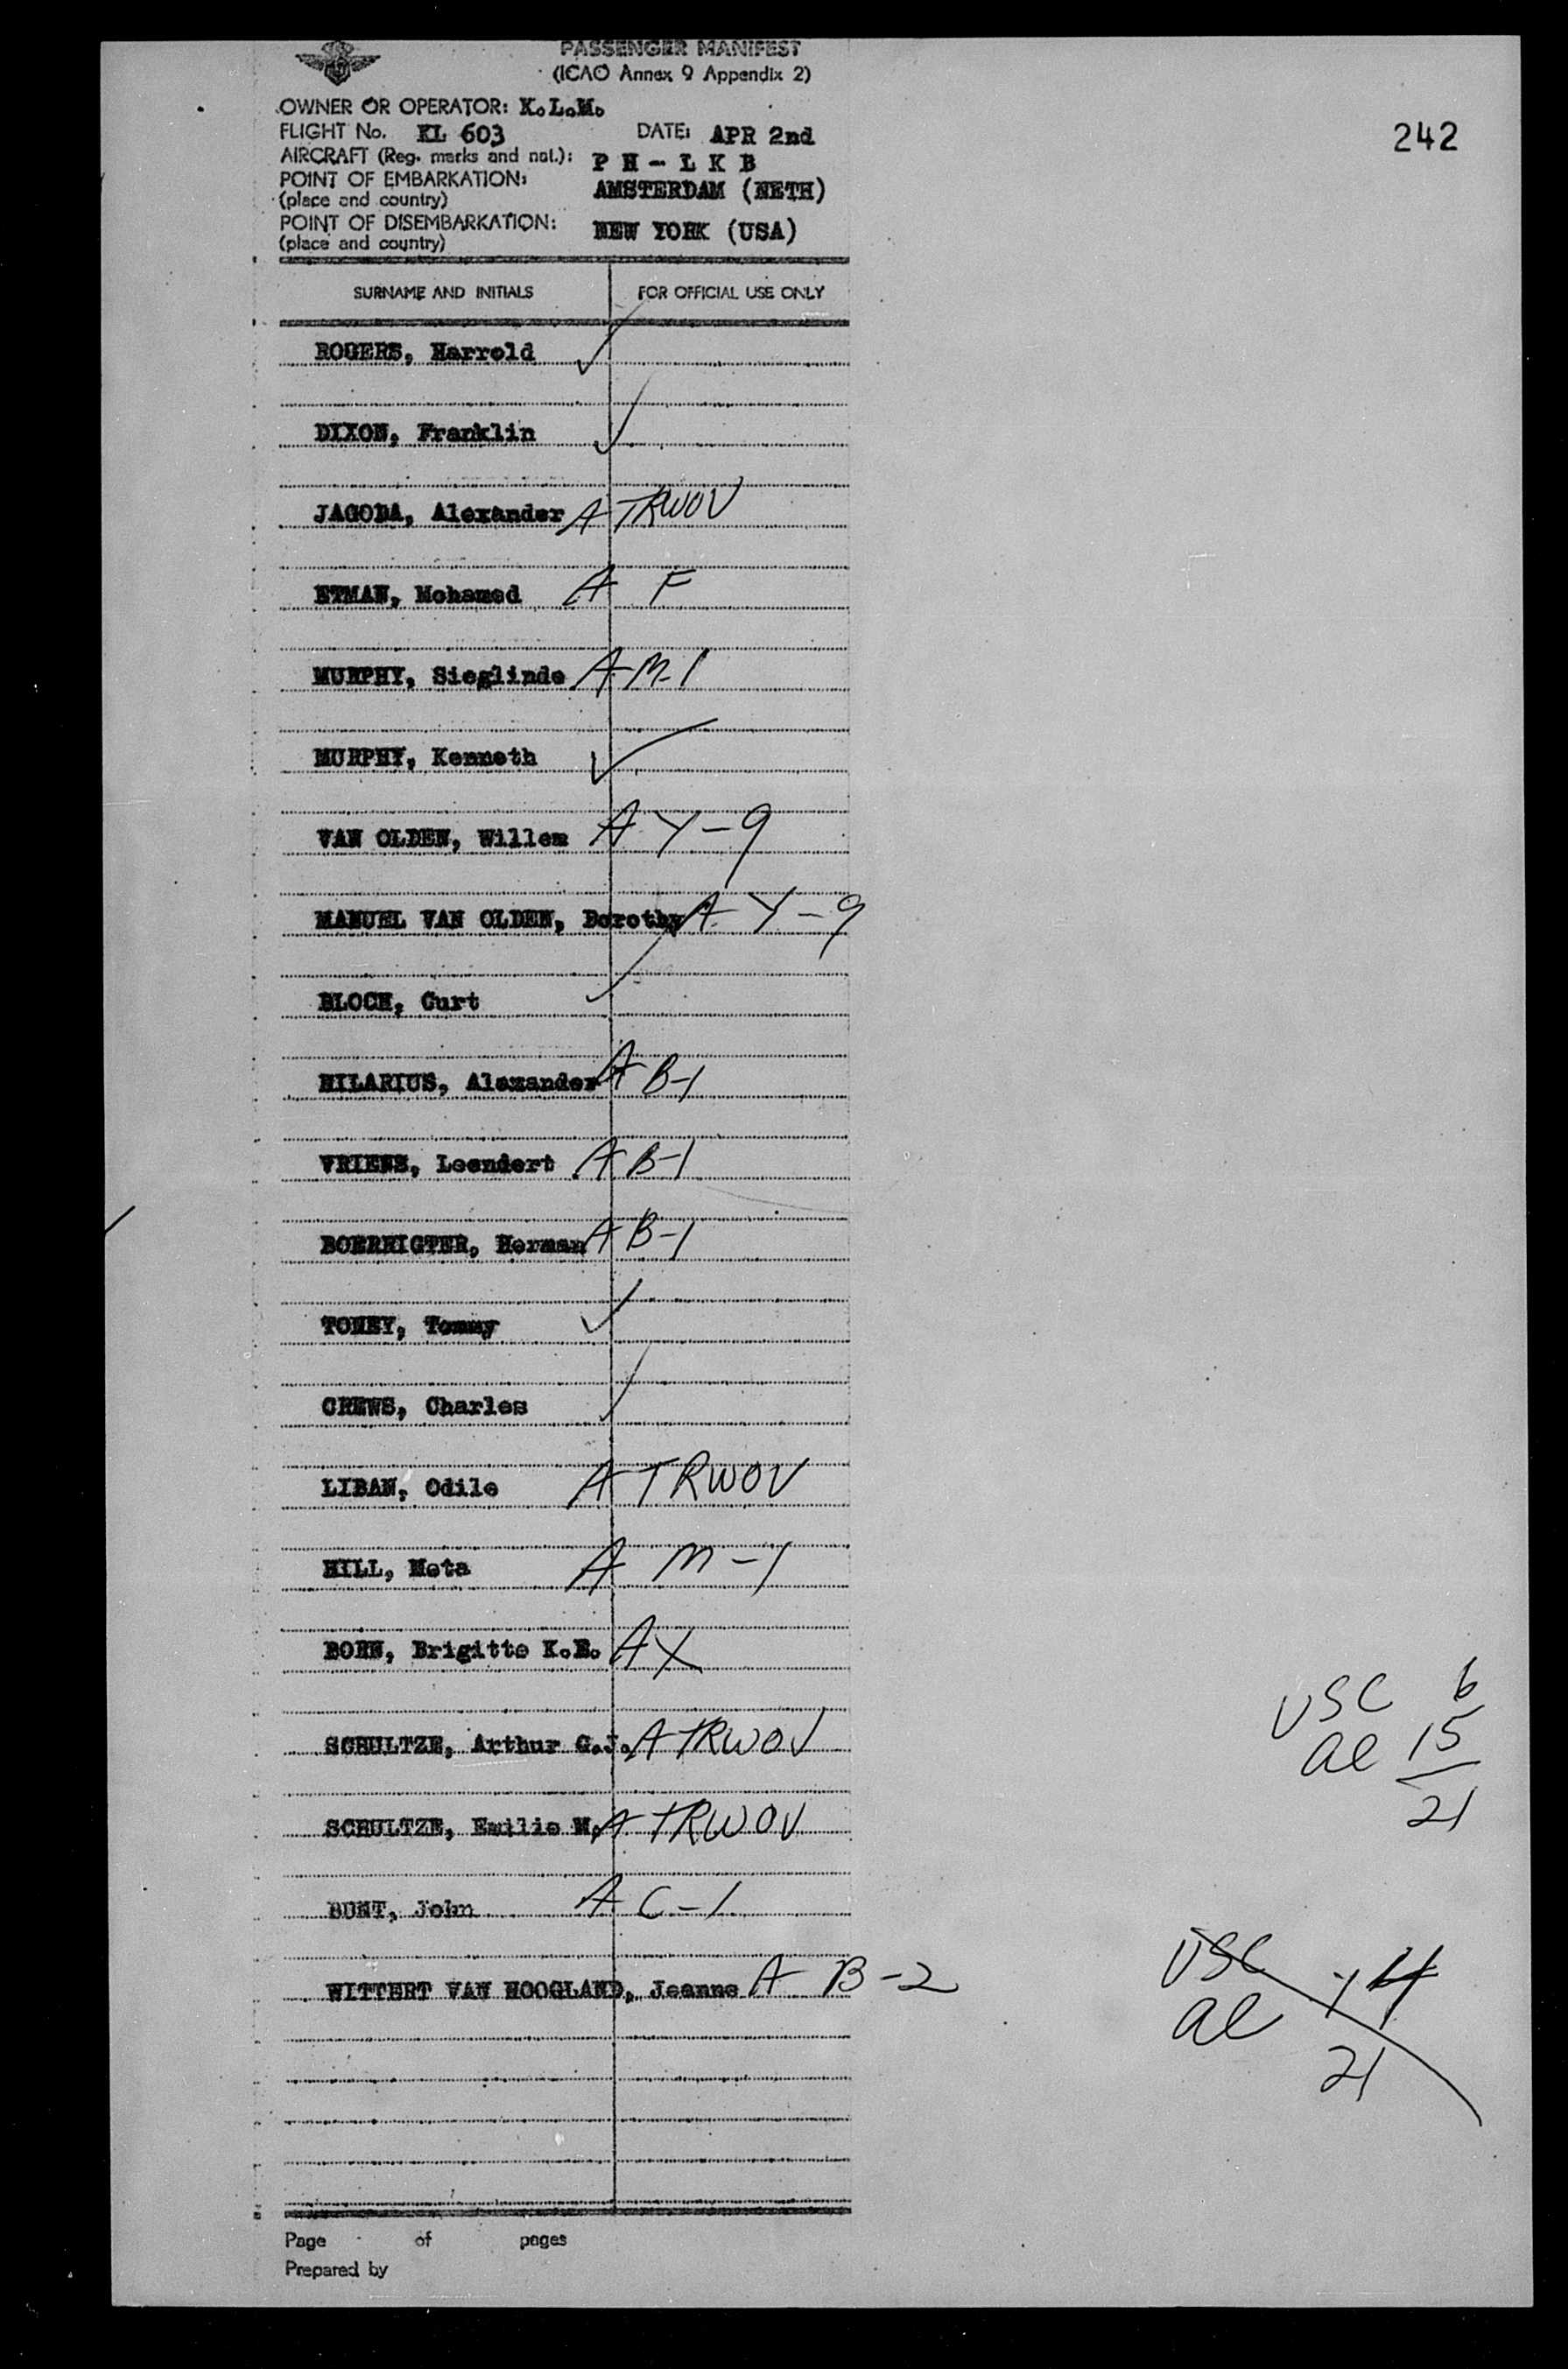 PASSENGER MANIFEST
(ICAO Annex 9 Appendix 2)
OWNER OR OPERATOR: K.L.M.
FLIGHT No. KL 603 DATE: APR 2nd
242
AIRCRAFT (Reg. marks and nat.): PH-LKB
POINT OF EMBARKATION: AMSTERDAM (NETH)
(place and country)
POINT OF DISEMBARKATION: NEW YORK (USA)
(place and country)
SURNAME AND INITIALS FOR OFFICIAL USE ONLY
ROGERS, Harrold ✓
DIXON, Franklin ✓
JAGODA, Alexander A TRWOV
ETMAN, Mohamed A F
MURPHY, Sieglinde A M-1
MURPHY, Kenneth ✓
VAN OLDEN, Willem A Y-9
MANUEL VAN OLDEN, Dorothy A Y-9
BLOCH, Curt ✓
HILARIUS, Alexander A B-1
VRIENS, Leendert A B-1
BOERRIGTER, Herman A B-1
TONEY, Tommy ✓
CREWS, Charles ✓
LIBAN, Odile A TRWOV
HILL, Meta A M-1
BOHN, Brigitte K.E. A X
SCHULTZE, Arthur G.J. A TRWOV
SCHULTZE, Emilie M. A TRWOV
BUNT, John A C-1
WITTERT VAN HOOGLAND, Jeanne A B-2
USC 6
al 15
21
USC
al 14
21
Page of pages
Prepared by